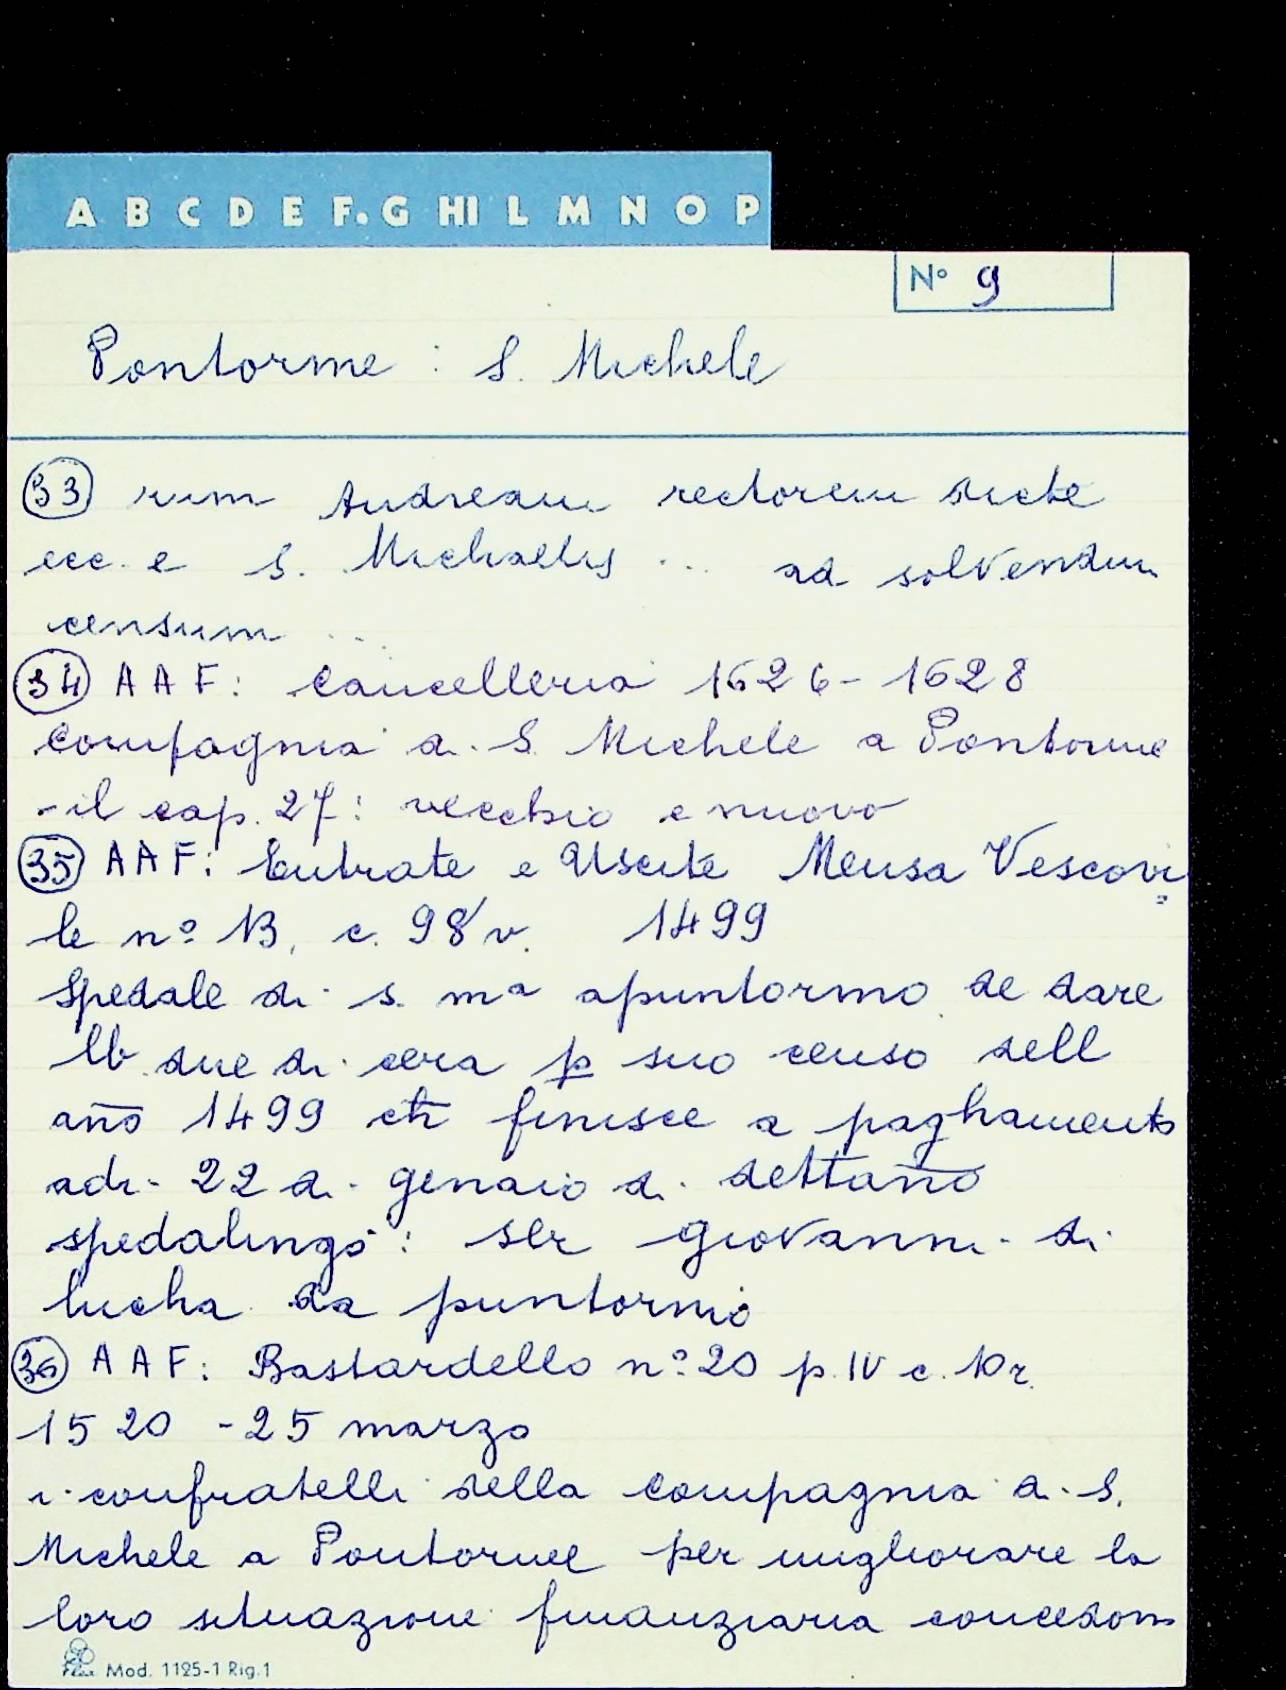 A B C D E F. G HI L M N O P
N° 9
Pontorme : S. Michele
33 rum Andream rectorem dicte
ecc. e S. Michaelis ... ad solvendum
censum ...
34 A A F: Cancelleria 1626-1628
Compagnia di S. Michele a Pontorme
- il cap. 27: vecchio e nuovo
35 A A F: Entrate e Uscite Mensa Vescovi
le n° 13, c. 98v. 1499
Spedale di s. mª apuntormo de dare
lb due di cera p suo censo dell
año 1499 ch finisce a paghamento
adi - 22 di gennaio di dettaño
spedalingo: ser giovanni di
lucha da puntormo
36 A A F: Bastardello n° 20 p. IV c. 10r.
1520 - 25 marzo
i confratelli della Compagnia di S.
Michele a Pontorme per migliorare la
loro situazione finanziaria concedono
Mod. 1125-1 Rig.1